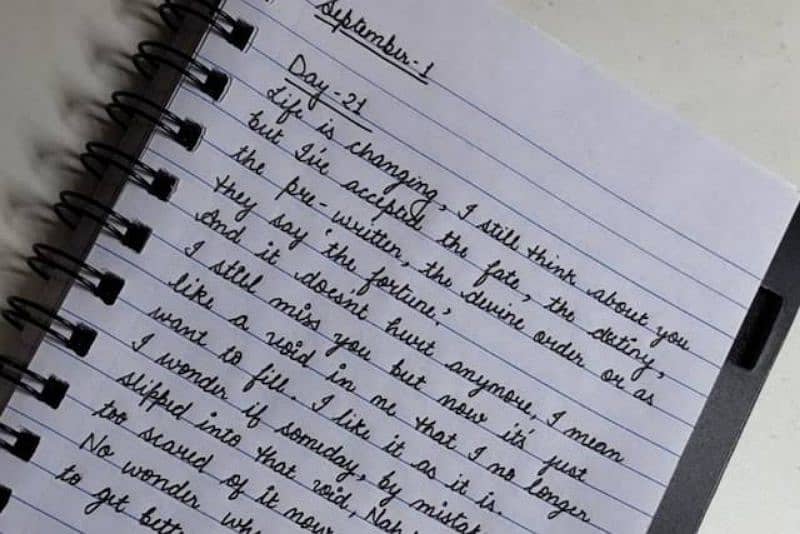 September-1
Day-21
Life is changing, I still think about you
but I've accepted the fate, the detiny,
the pre-written, the devine order or as
they say 'the fortune'.
And it doesnt hurt anymore, I mean
I still miss you but now its' just
like a void in me that I no longer
want to fill. I like it as it is.
I wonder if someday, by mistak
slipped into that void, Nah
too scared of it now
No wonder wh
to get bett